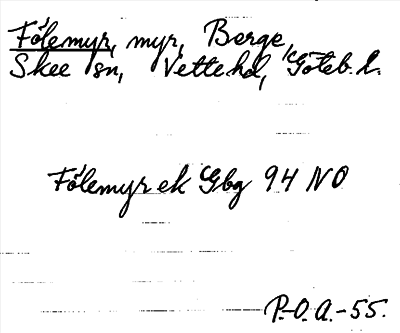 Fölemyr, myr, Berge,
Skee sn, Vette hd, Göteb. l.
Fölemyr ek Gbg 94 NO
P.-O.A.-55.